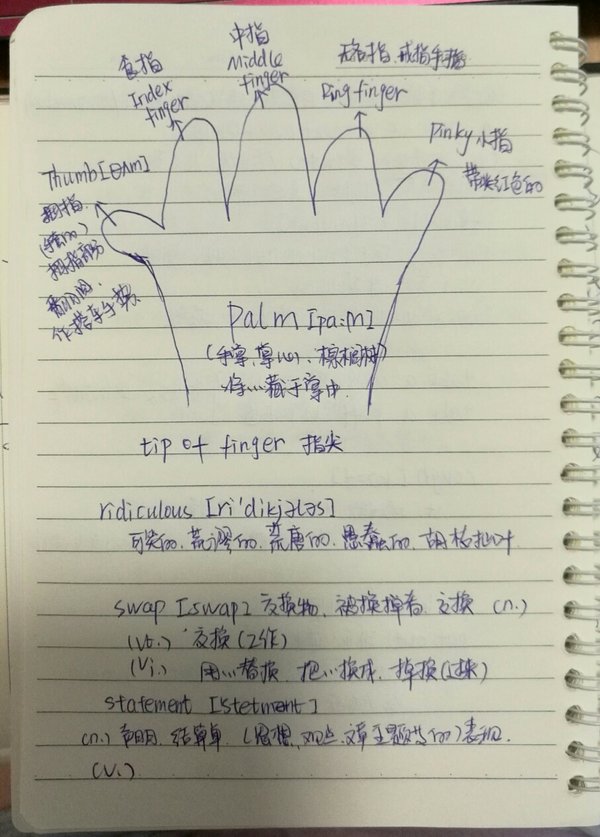 食指
Index
finger
中指
Middle
finger
无名指、戒指手指
Ring finger
Pinky 小指
带淡红色的
Thumb[θʌm]
拇指
(手套的)
拇指部分
翻阅
作搭车手势
palm [pa:m]
(手掌、掌心、棕榈树)
将…藏于掌中
tip of finger 指尖
ridiculous [ri'dikjələs]
可笑的、荒谬的、荒唐的、愚蠢的、胡格扯叶
swap [swap] 交换物、被换掉者、交换 (n.)
(vt.) 交换(工作)
(vi.) 用…替换、把…换成、掉换(过来)
statement [stetmənt]
(n.) 声明、结算单、(思想、观点、文章主题等的)表现.
(v.)